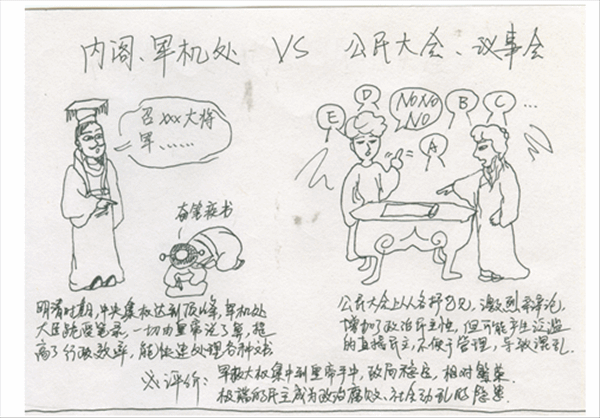 内阁、军机处 VS 公民大会、议事会
召xxx大将
军……
奋笔疾书
E
D
NoNoNo
NO
B
C
...
A
明清时期,中央集权达到顶峰,军机处
大臣跪受笔录,一切由皇帝说了算,提
高了行政效率,能快速处理各种文书
公民大会上人各抒己见,激烈辩论,
增加了政治民主性,但可能产生泛滥
的直接民主,不便于管理,导致混乱.
评价:
军政大权集中到皇帝手中,政局稳定,相对繁荣.
极端的民主成为政治腐败、社会动乱的隐患.